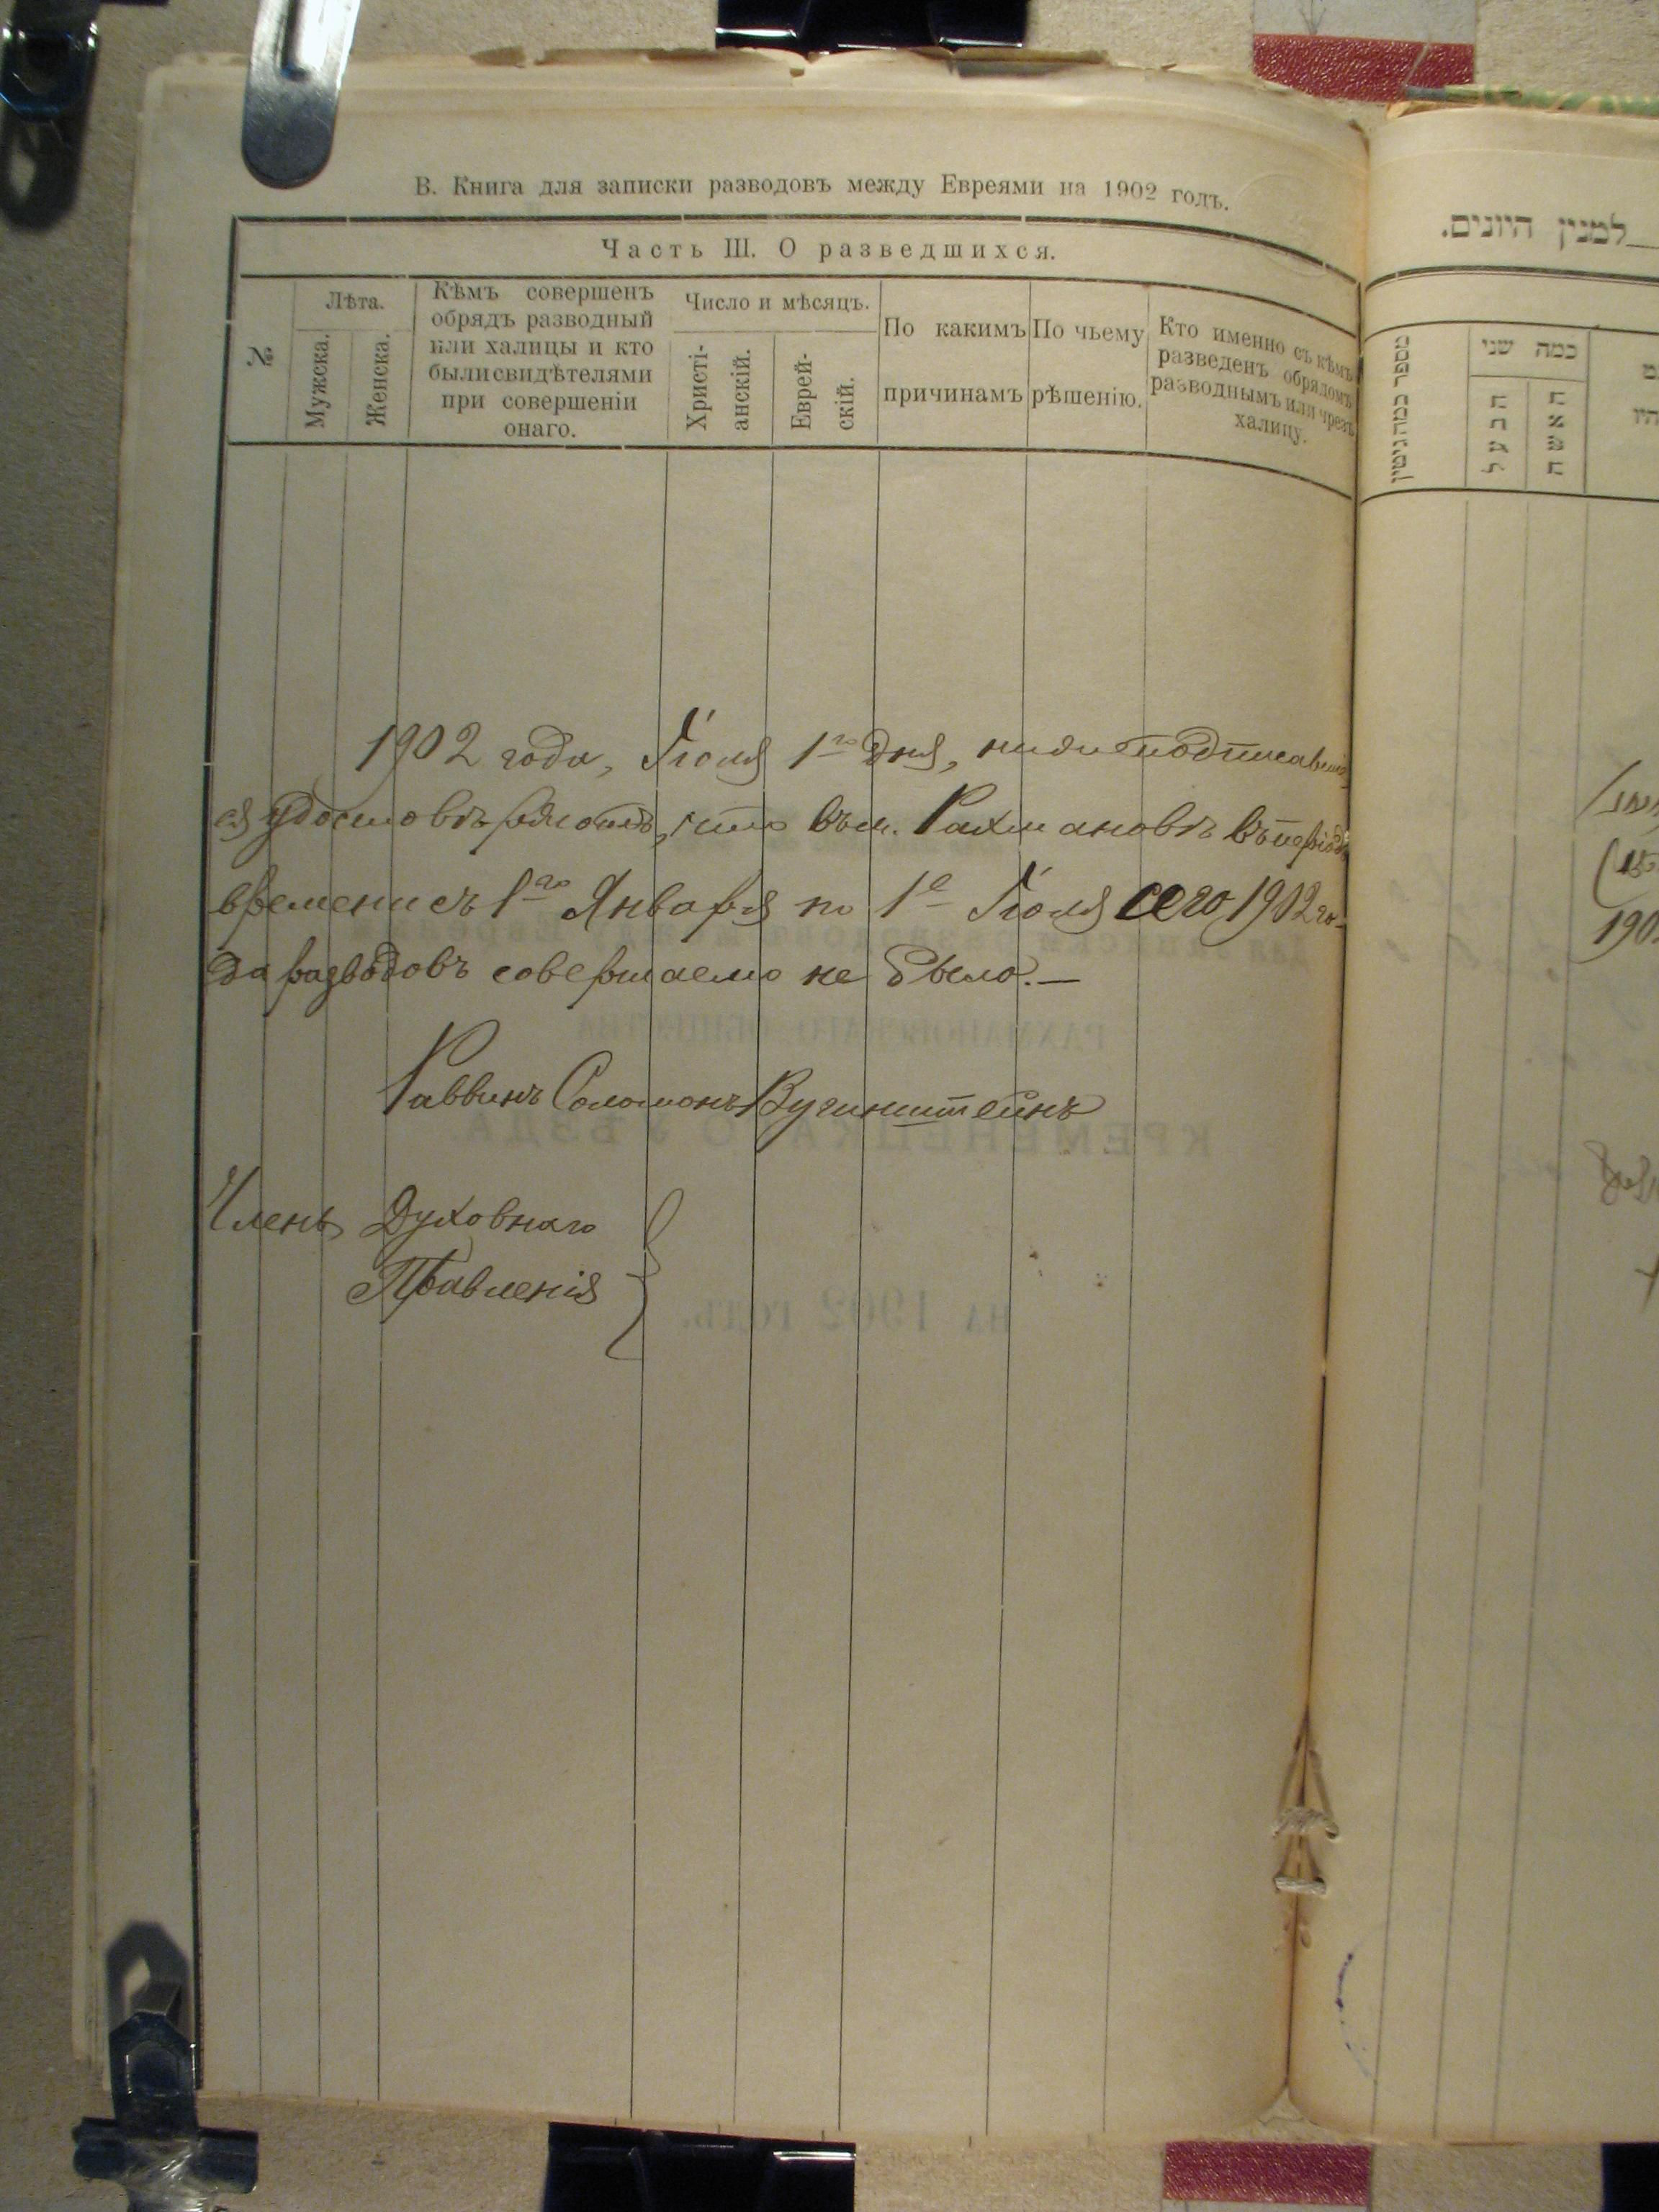 В. Книга для записки разводовъ между Евреями на 1902 годъ.
Часть III. О разведшихся.
№
Лѣта.
Мужска.
Женска.
Кѣмъ совершенъ
обрядъ разводный
или халицы и кто
были свидѣтелями
при совершеніи
онаго.
Число и мѣсяцъ.
Христі-
анскій.
Еврей-
скій.
По какимъ
причинамъ
По чьему
рѣшенію.
Кто именно съ кѣмъ
разведенъ обрядомъ
разводнымъ или чрезъ
халицу.
1902 года, Іюля 1го дня, нижеподписавшiй
ся удостовѣряютъ, что въ м. Рахмановѣ въ періодъ
времени съ 1го Января по 1е Іюля сего 1902 го-
да разводовъ совершаемо не было.—
Раввинъ Соломонъ
Членъ Духовнаго
Правленія
למנין היונים.
מספר כמה גיטין
כמה שני
הבעל
האשה
190